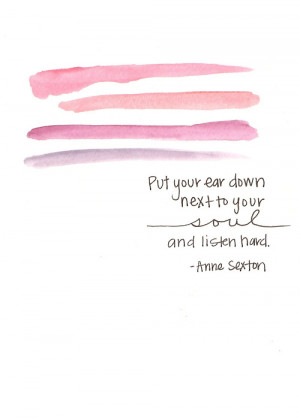 Put your ear down
next to your
soul
and listen hard.
-Anne Sexton